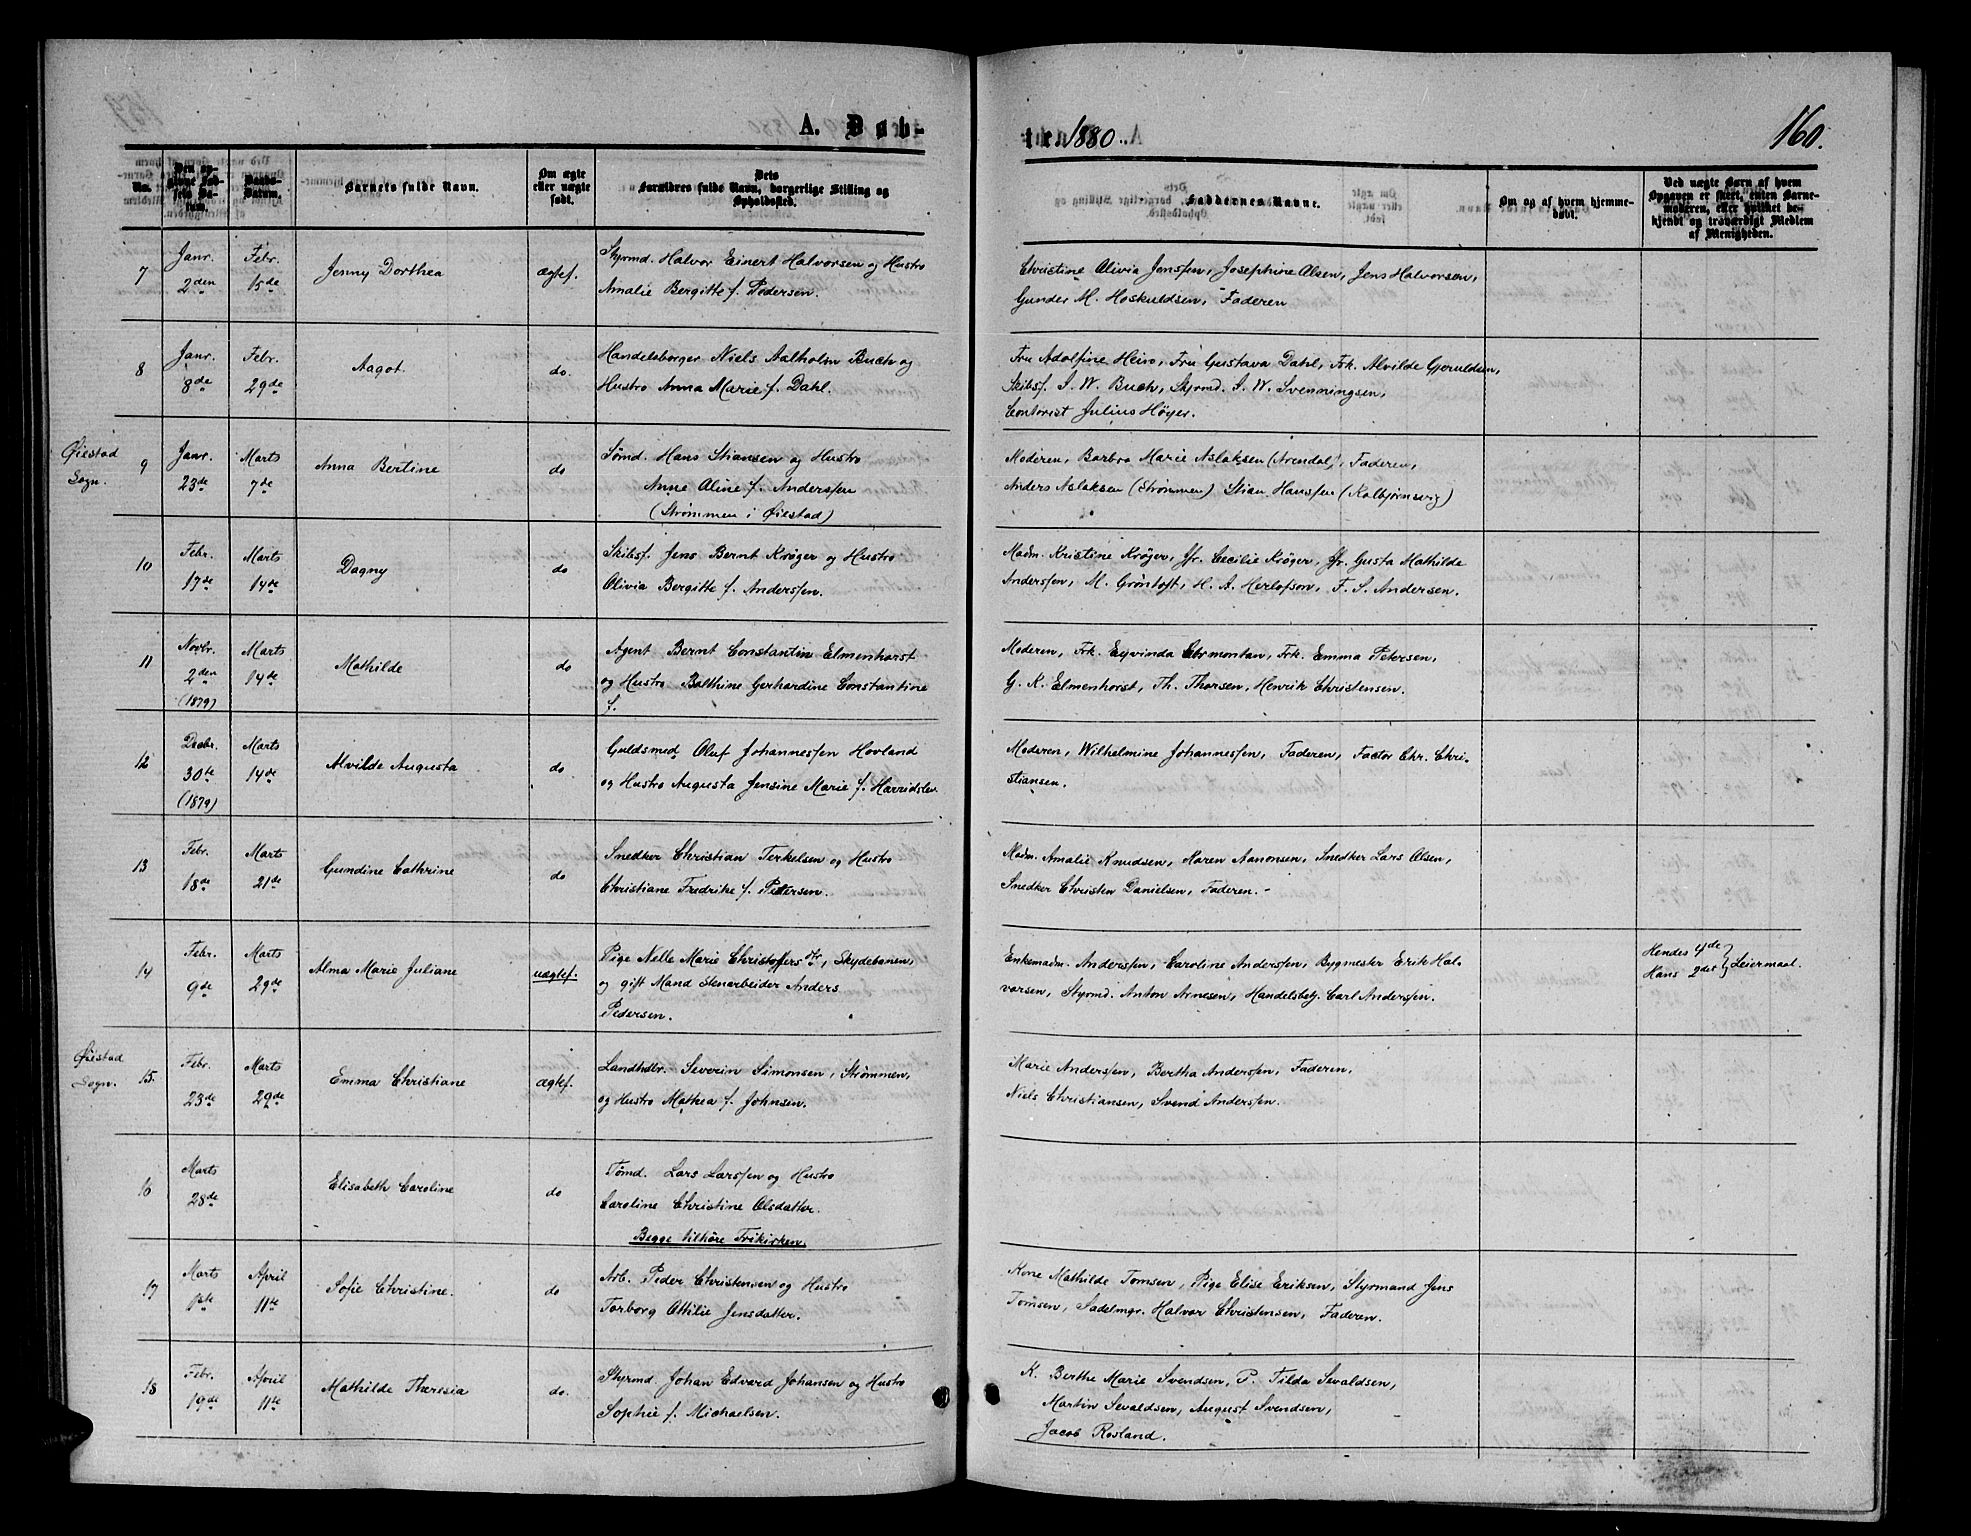 A. Døb-
No.
Den opgivne Fødsels Datum.
Daabs-Datum.
Barnets fulde Navn.
Om ægte eller uægte født.
Dets Forældres fulde Navn, borgerlige Stilling og Opholdssted.
7
Janr.
2den
Febr.
15de
Jenny Dorthea
ægtef.
Styrmd. Halvor Einert Halvorsen og Hustro
Amalie Bergitte f. Pedersen.
8
Janr.
8de
Febr.
29de
Aagot.
do.
Handelsborger Niels Aalholm Buch og
Hustro Anna Marie f. Dahl.
Øiestad
Sogn.
9
Janr.
23de
Marts
7de
Anna Bertine
do
Sømd. Hans Stiansen og Hustro
Anne Aline f. Anderssen
(Strømmen i Øiestad)
10
Febr.
17de
Marts
14de
Dagny
do
Skibsf. Jens Bernt Krøger og Hustro
Olivia Bergitte f. Anderssen.
11
Novbr.
2den
(1879)
Marts
14de
Mathilde
do
Agent Bernt Constantin Elmenhorst
og Hustro Balthine Gerhardine Constantine
f.
12
Decbr.
30te
(1879)
Marts
14de
Alvilde Augusta
do
Guldsmed Oluf Johannessen Hovland
og Hustro Augusta Jensine Marie f. Harridslev
13
Febr.
18de
Marts
21de
Gundine Cathrine
do
Snedker Christian Terkelsen og Hustro
Christiane Fredrike f. Pettersen.
14
Febr.
9de
Marts
29de
Alma Marie Juliane
uægtef.
Pige Nelle Marie Christoffersdr, Skydebanen,
og gift Mand Stenarbeider Anders
Pedersen.
Øiestad
Sogn.
15.
Febr.
23de
Marts
29de
Emma Christiane
ægtef.
Landhdlr. Severin Simonsen, Strømmen,
og Hustro Mathea f. Johnsen.
16
Marts
28de
Elisabeth Caroline
do
Tømd. Lars Larssen og Hustro
Caroline Christine Olsdatter.
Begge tilhøre Frikirken.
17
Marts
1ste
April
11te
Sofie Christine.
do
Arb. Peder Christensen og Hustro
Torborg Ottilie Jensdatter.
18
Febr.
19de
April
11te
Mathilde Theresia
do.
Styrmd. Johan Edvard Johansen og Hustro
Sophie f. Michaelsen.
te. 1880.
160.
Faddernes Navne.
Om og af hvem hjemmedøbt.
Ved uægte Børn af hvem Opgaven er skeet, enten Barnemoderen, eller hvilket bekjendt og troværdigt Medlem af Menigheden.
Christine Olivia Jenssen, Josephine Olsen, Jens Halvorsen,
Gunder M. Hoskuldsen, Faderen
Fru Adolfine Hein, Fru Gustava Dahl, Frk. Alvilde Gjeruldsen,
Skibsf. S. W. Buch, Styrmd. S. W. Svenningsen,
Contorist Julius Høyer.
Moderen, Barbra Marie Aslaksen (Arendal), Faderen,
Anders Aslaksen (Strømmen) Stian Hanssen (Kolbjørnsvig)
Madm. Kristine Krøger, Jfr. Cecilie Krøger, Jfr. Gusta Mathilde
Anderssen, M. Grøntoft, H. A. Herlofson, F. S. Andersen.
Moderen, Frk. Eyvinda Ohrmontan, Frk. Emma Petersen,
G. K. Elmenhorst, Th. Thorsen, Henrik Christensen.
Moderen, Wilhelmine Johannessen, Faderen, Factor Chr. Chri-
stiansen.
Madm. Amalie Knudsen, Karen Aanonsen, Snedker Lars Olsen,
Snedker Christen Danielsen, Faderen.
Enkemadm. Anderssen, Caroline Anderssen, Bygmester Erik Hal-
vorsen, Styrmd. Anton Arnesen, Handelsbetj. Carl Anderssen.
Hendes 4de
Hans 2det } Leiermaal.
Marie Anderssen, Bertha Anderssen, Faderen,
Niels Christiansen, Svend Anderssen.
Kone Mathilde Tomsen, Pige Elise Eriksen, Styrmand Jens
Tomsen, Sadelmgr. Halvor Christensen, Faderen.
K. Berthe Marie Svendsen, P. Tilda Sevaldsen,
Martin Sevaldsen, August Svendsen,
Jacob Rosland.